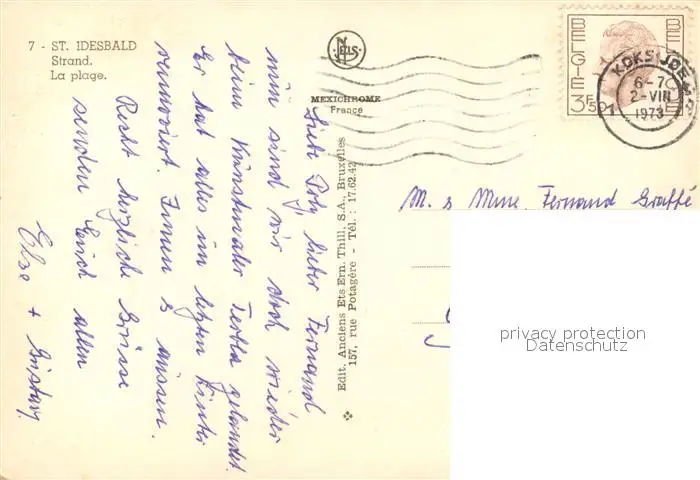 7 - ST. IDESBALD
Strand.
La plage.
NELS
MEXICHROME
France
BELGIË
BELGIQUE
3F50
KOKSIJDE
6-7
2-VIII
1973
1
Edit. Anciens Ets Ern. Thill, S.A., Bruxelles
157, rue Potagère - Tél. : 17.62.42
M. & Mme. Fernand Graffe
Liebe Poly, lieber Fernand
nun sind wir doch wieder
beim Kunstmaler gelandet.
Er hat alles im letzten Winter
renoviert. Innen & aussen.
Recht herzliche Grüsse
senden Euch allen
Else + Gustav.
privacy protection
Datenschutz